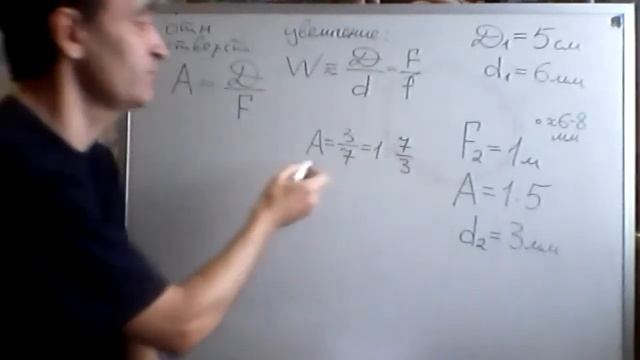 отн
отверст
A = D/F
увеличение:
W = D/d = F/f
A = 3/7 = 1 7/3
D₁ = 5 см
d₁ = 6 мм
6-8
мм
F₂ = 1 м
A = 1:5
d₂ = 3 мм